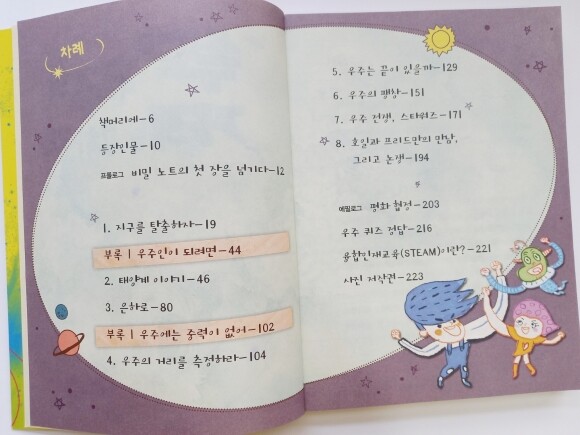 차례
책머리에-6
등장인물-10
프롤로그 비밀 노트의 첫 장을 넘기다-12
1. 지구를 탈출하자-19
부록 | 우주인이 되려면-44
2. 태양계 이야기-46
3. 은하로-80
부록 | 우주에는 중력이 없어-102
4. 우주의 거리를 측정하라-104
5. 우주는 끝이 있을까-129
6. 우주의 팽창-151
7. 우주 전쟁, 스타워즈-171
8. 호일과 프리드만의 만남,
그리고 논쟁-194
에필로그 평화 협정-203
우주 퀴즈 정답-216
융합인재교육(STEAM)이란?-221
사진 저작권-223